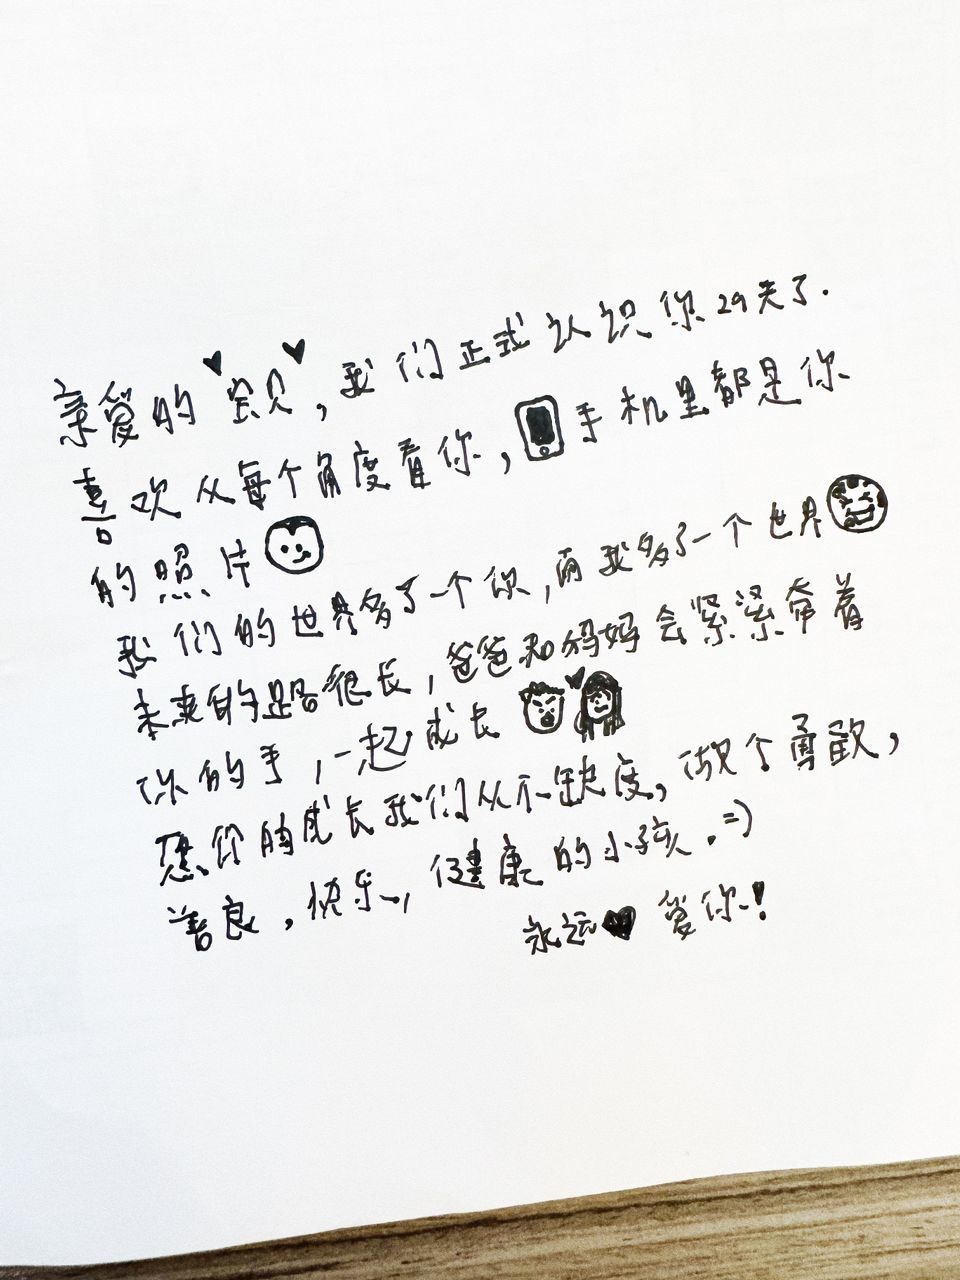 亲爱的宝贝，我们正式认识你29天了.
喜欢从每个角度看你，手机里都是你
的照片
我们的世界多了一个你，而我多了一个世界
未来的路很长，爸爸和妈妈会紧紧牵着
你的手，一起成长
您你的成长我们从不缺度，做个勇敢，
善良，快乐，健康的小孩.=)
永远♥爱你!